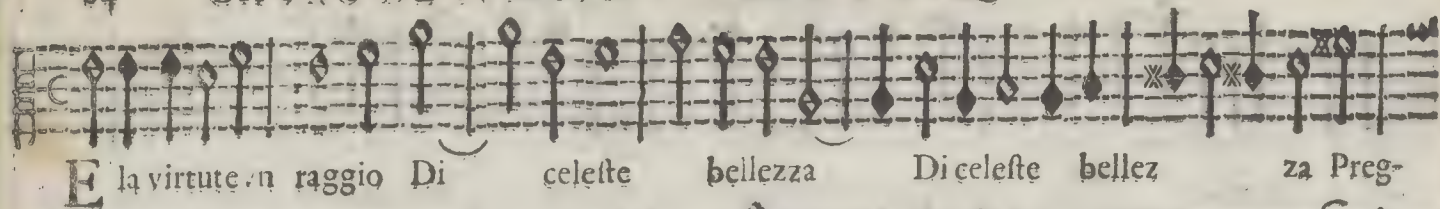 E la virtute .n raggio Di celeſte bellezza Di celeſte bellez za Preg-